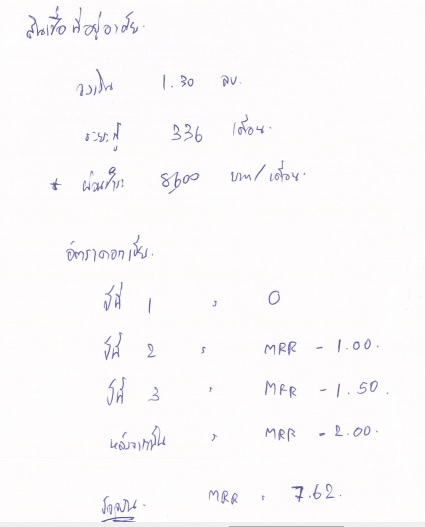 สินเชื่อที่อยู่อาศัย.
วงเงิน 1.30 ลบ.
ระยะกู้ 336 เดือน.
* ผ่อนชำระ 8,600 บาท/เดือน.
อัตราดอกเบี้ย.
ปีที่ 1 : 0
ปีที่ 2 : MRR - 1.00.
ปีที่ 3 : MRR - 1.50.
หลังจากนั้น : MRR - 2.00.
ปัจจุบัน. MRR : 7.62.